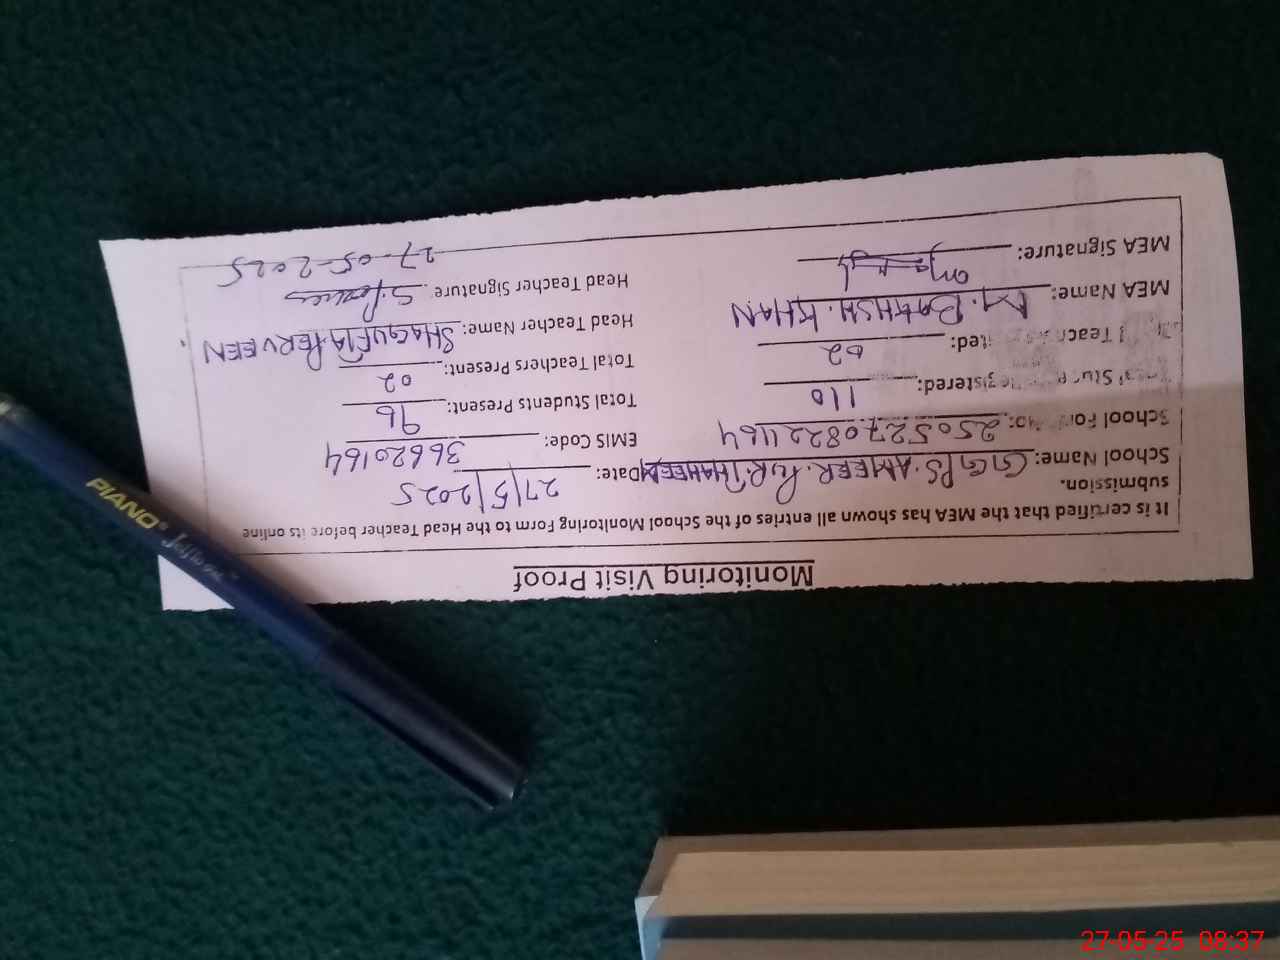 Monitoring Visit Proof
It is certified that the MEA has shown all entries of the School Monitoring Form to the Head Teacher before its online
submission.
School Name: GGPS. AMEER. PUR THAHEEM Date: 27/5/2025
School Form No: 2505270822164 EMIS Code: 36620164
Registered: 110 Total Students Present: 96
02 Total Teachers Present: 02
MEA Name: M. BAKHSH. KHAN Head Teacher Name: SHAGUFTA. PERVEEN
MEA Signature: Head Teacher Signature:
27-05-2025
PIANO
27-05-25 08:37